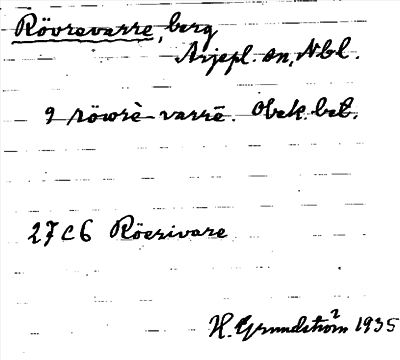 Rövrevarre, berg
Arjepl. sn, Nbl.
9 röwrè-varrē. Obek. bet.
27C6 Röerivare
H. Grundström 1935